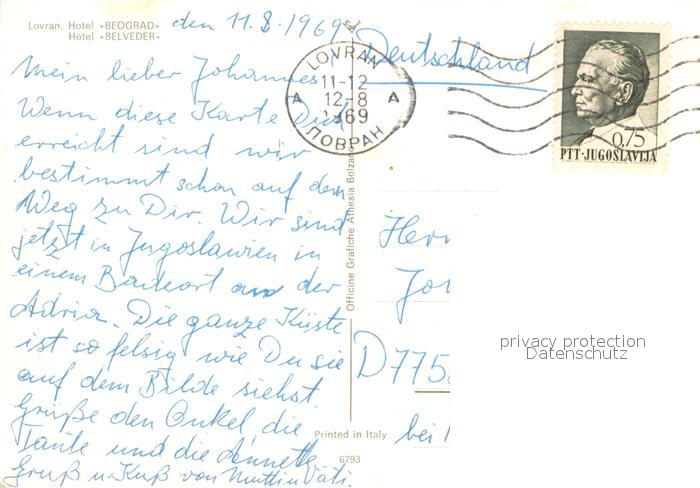 Lovran, Hotel «BEOGRAD»
Hotel «BELVEDER»
den 11.8.1969
Mein lieber Johannes
Wenn diese Karte Dich
erreicht sind wir
bestimmt schon auf dem
Weg zu Dir. Wir sind
jetzt in Jugoslawien in
einem Badeort an der
Adria. Die ganze Küste
ist so felsig wie Du sie
auf dem Bilde siehst
Grüße den Onkel die
Tante und die Annette
Gruß u. Kuß von Mutti u Vati.
Officine Grafiche Athesia Bolzano
Printed in Italy
6793
LOVRAN
11-12
A 12-8 A
1969
ЛОВРАН
Deutschland
0,75
PTT-JUGOSLAVIJA
Herr
Joh
D 775
bei
privacy protection
Datenschutz